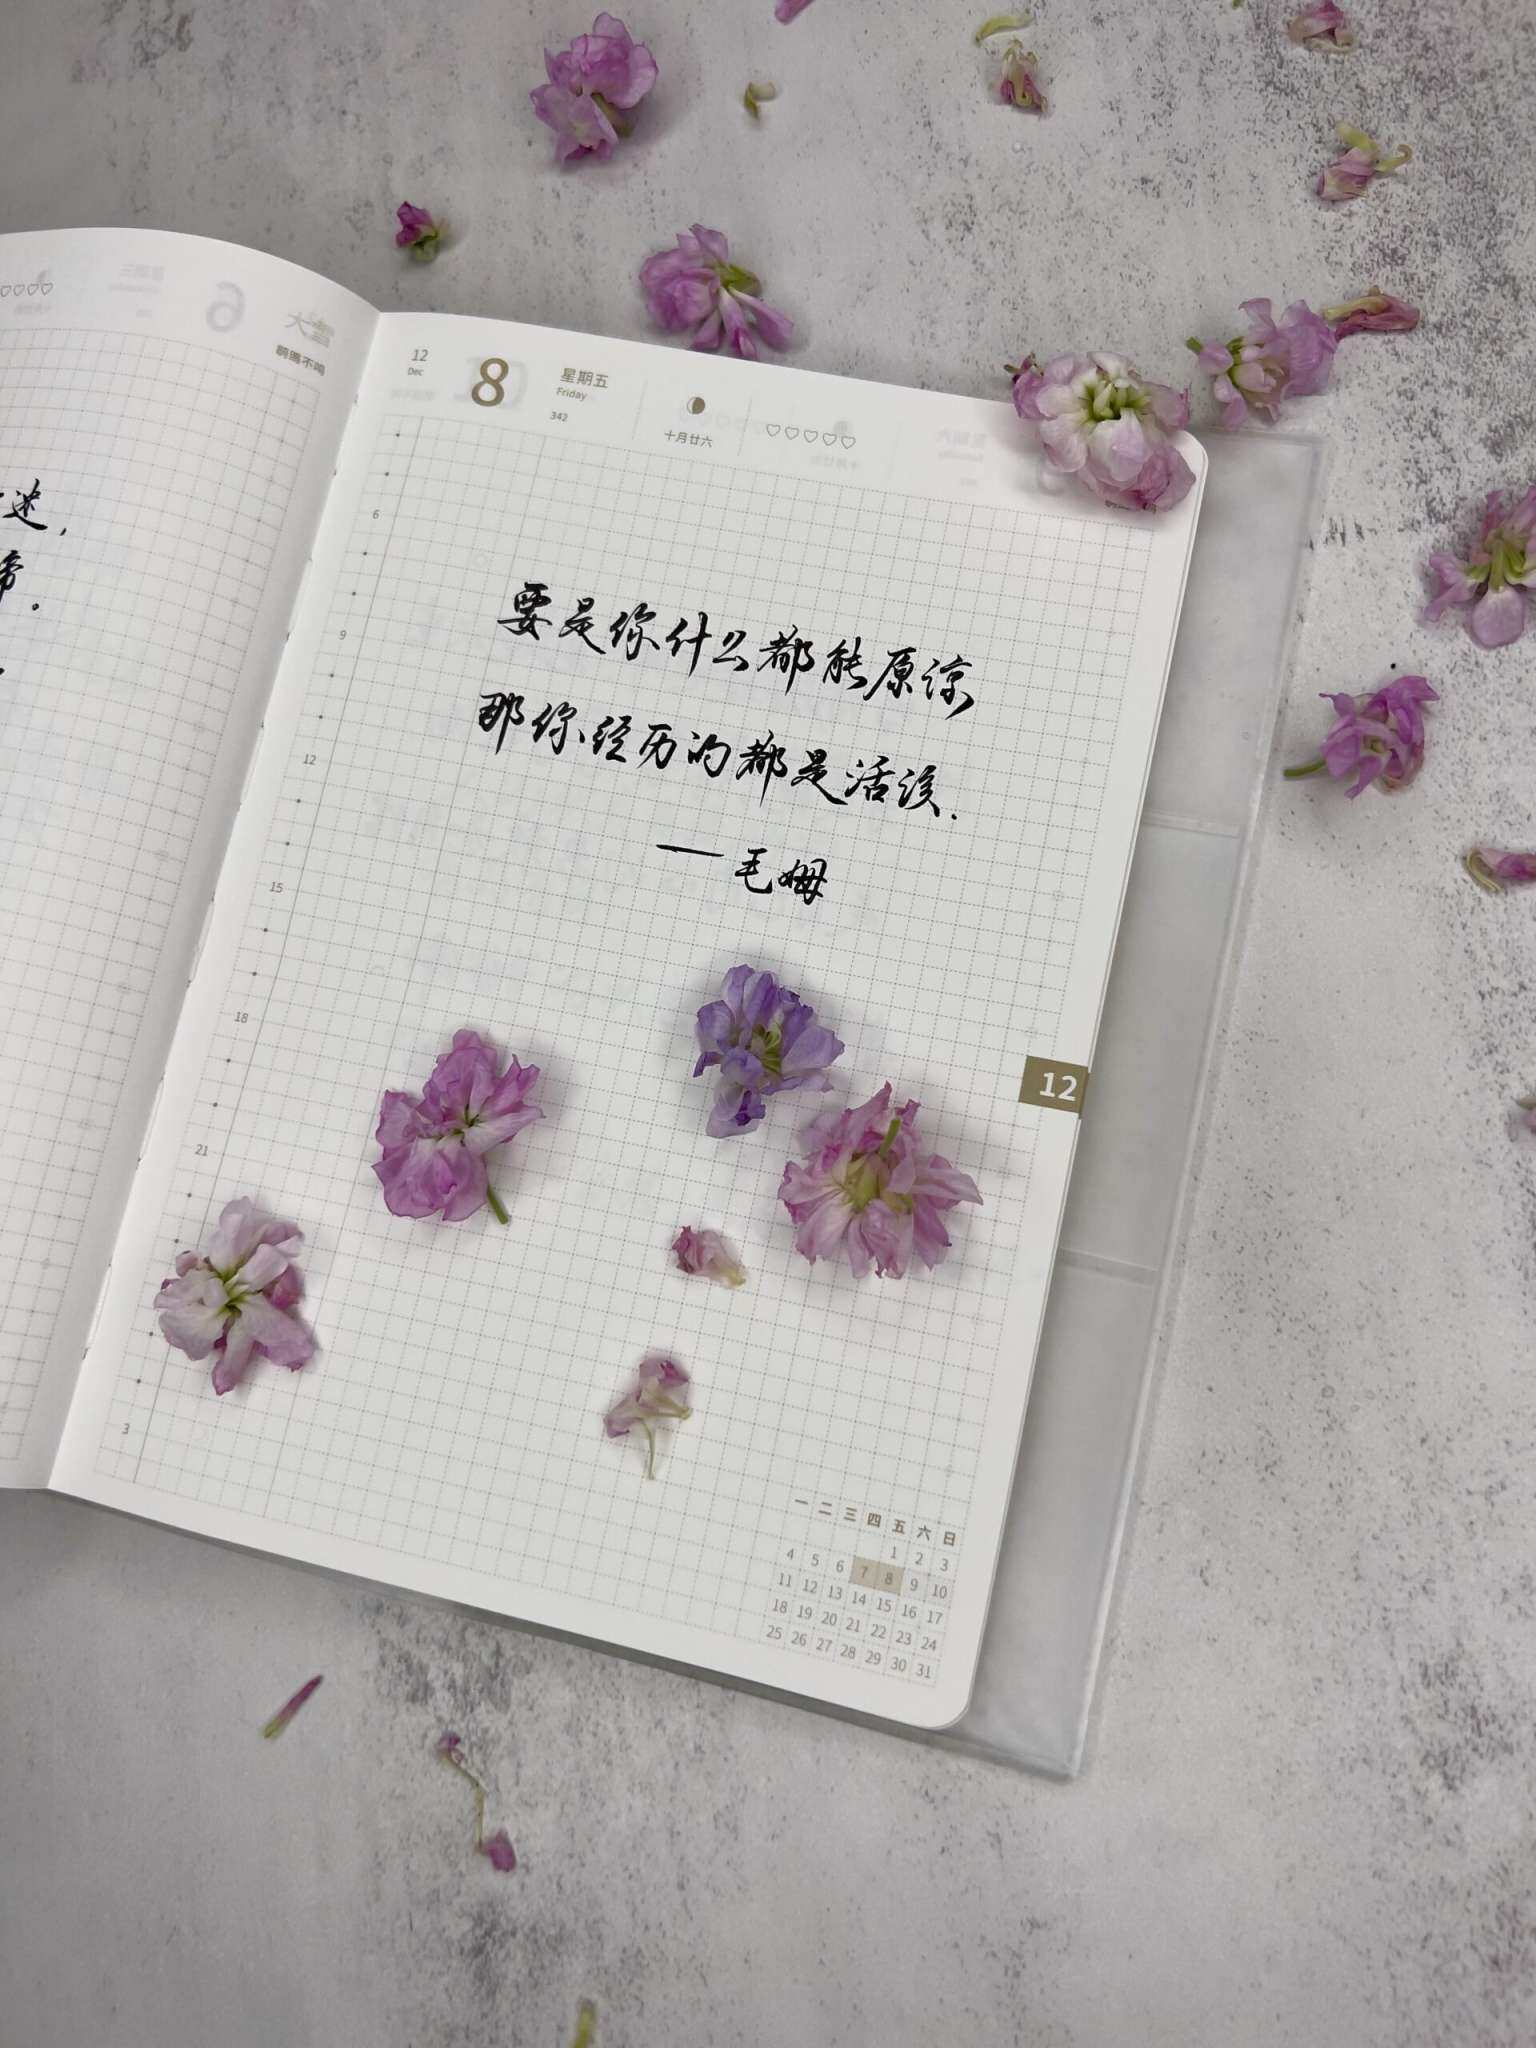 迷，
帝。
大雪
鹖鴠不鸣
12
Dec
8
星期五
Friday
342
十月廿六
6
9
12
15
18
21
3
要是你什么都能原谅
那你经历的都是活该.
——毛姆
12
一 二 三 四 五 六 日
1 2 3
4 5 6 7 8 9 10
11 12 13 14 15 16 17
18 19 20 21 22 23 24
25 26 27 28 29 30 31